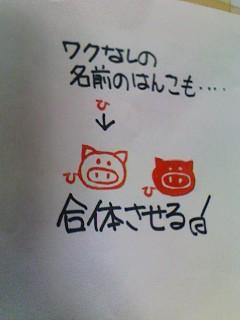 ワクなしの
名前のはんこも‥‥
ひ
↓
ひ ひ
合体させる